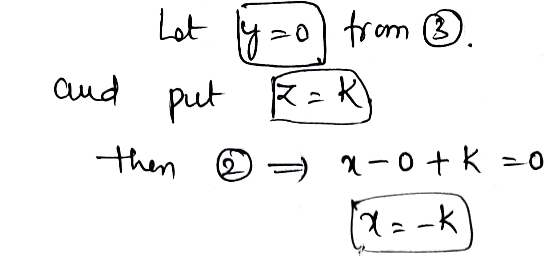 Let y=0 from ③.
and put z=K
then ② ⟹ x-0+K=0
x=-K